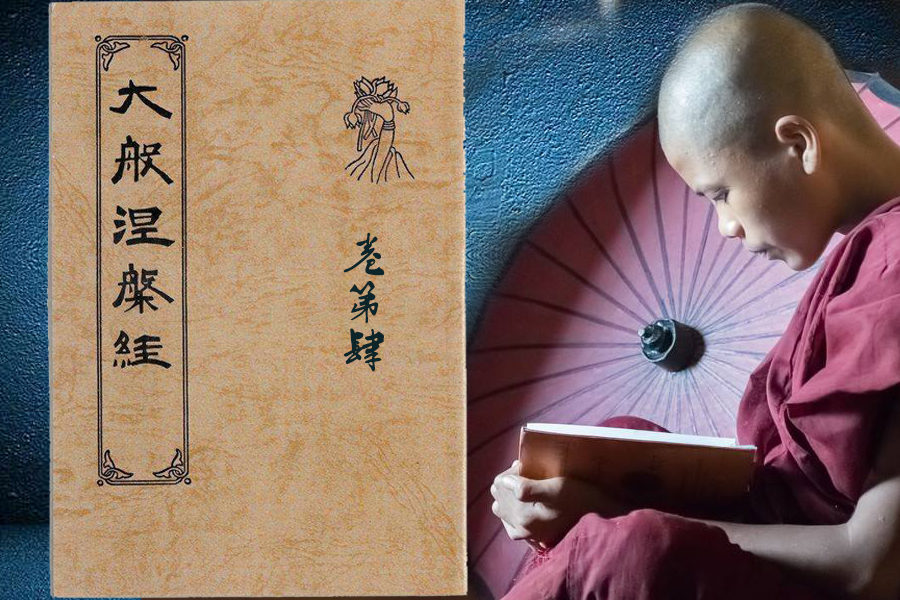 大般涅槃經
卷第肆